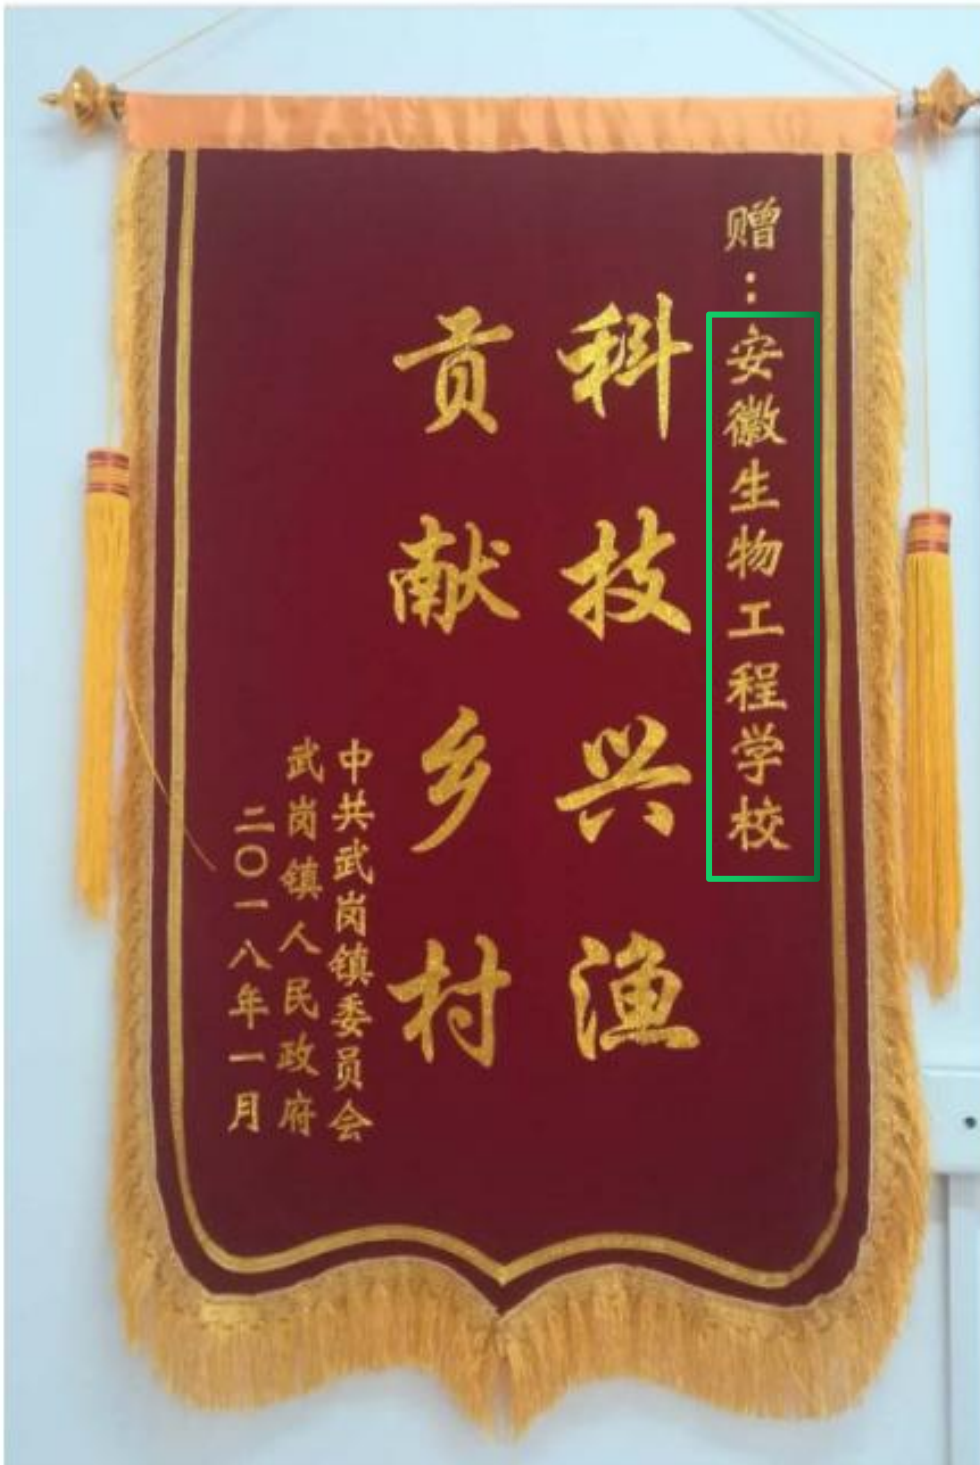 赠：安徽生物工程学校
科技兴渔
贡献乡村
中共武岗镇委员会
武岗镇人民政府
二〇一八年一月